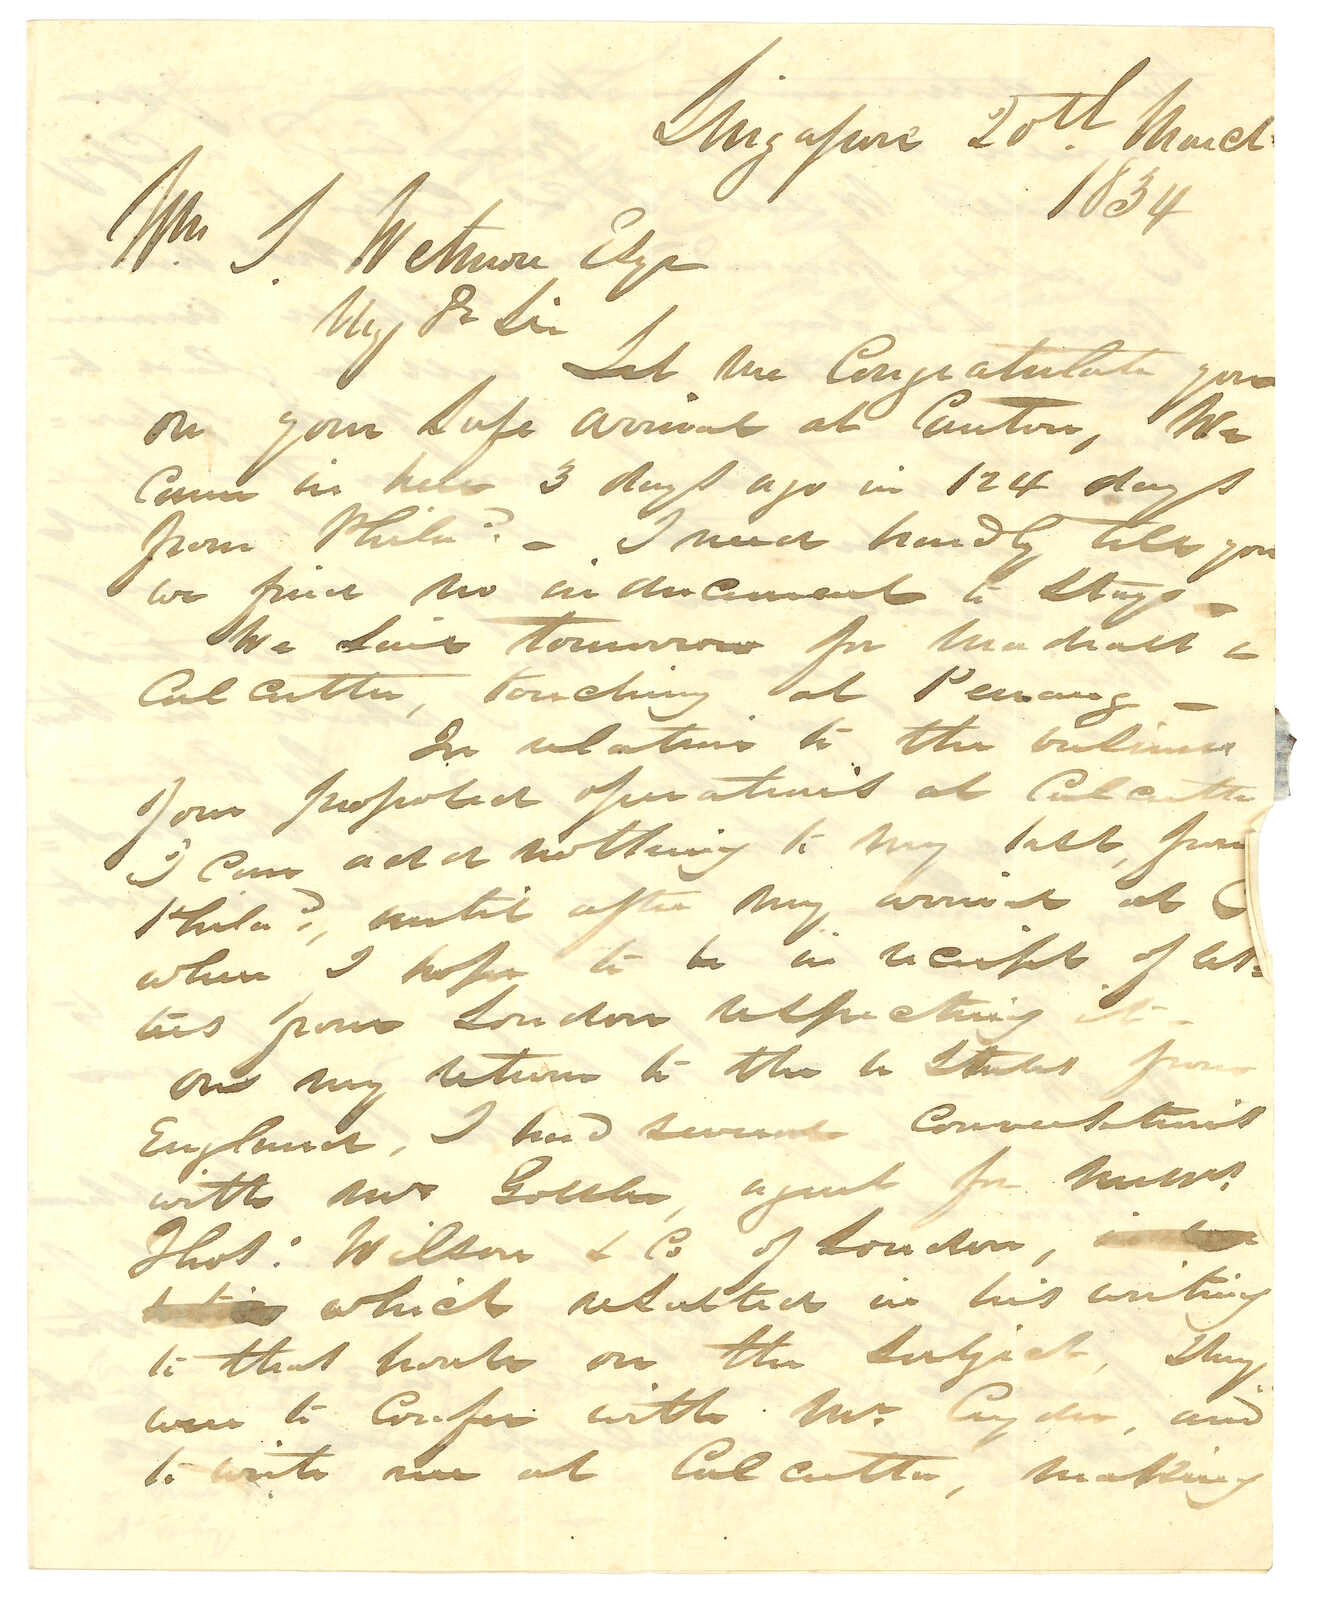 Singapore 20th. March
1834
Wm. S. Wetmore Esqr
My Dr Sir
Let me Congratulate you
on your Safe arrival at Canton, We
came in here 3 days ago in 124 days
from Phila? - I need hardly tell you
we find no inducement to stay -
We Sail tomorrow for Madrass &
Calcutta, touching at Penang -
In relation to the business
your proposed operations at Calcutta
I can add nothing to my last, from
Phila?, until after my arrival at C
when I hope to be in receipt of let-
ters from London respecting it -
On my return to the U States from
England, I had several Conversations
with Mr , agent for Messrs.
Thos: Wilson & Co of London,
which resulted in his writing
to that house on the Subject, they
were to Confer with Mr. Cryder, and
to write me at Calcutta, making